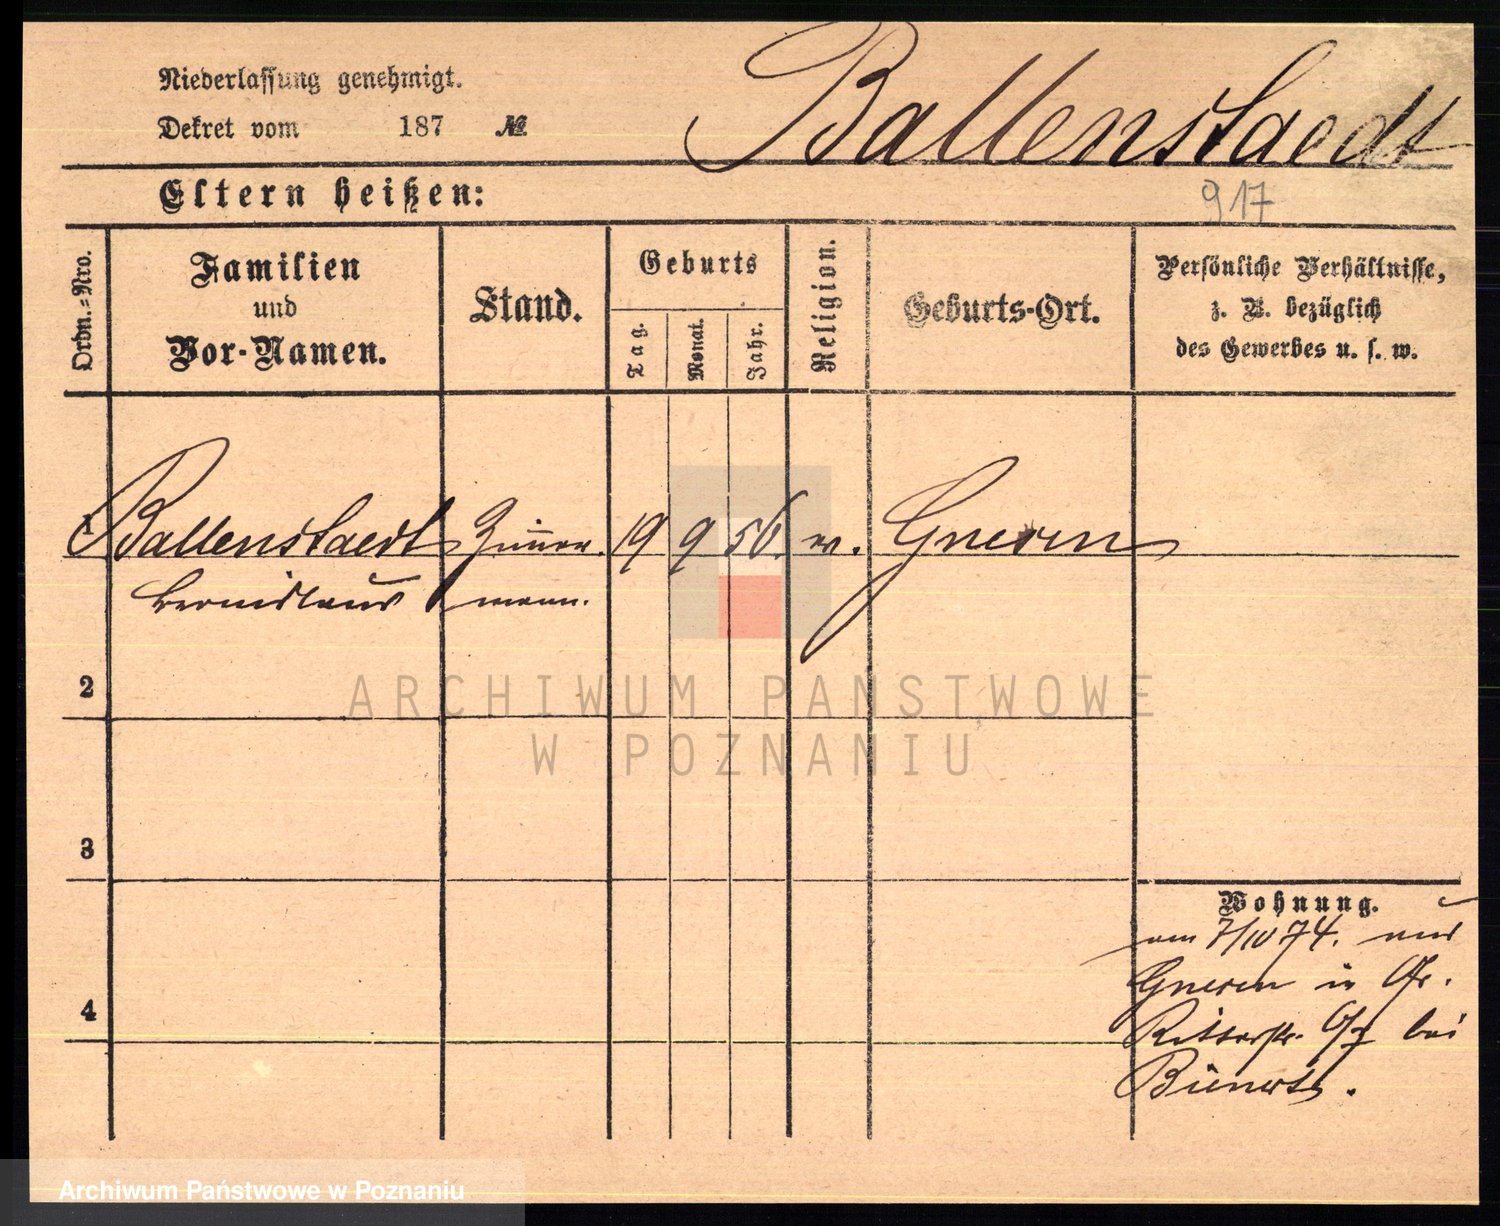 Niederlassung genehmigt.
Dekret vom 187 №
Ballenstaedt
Eltern heißen:
917
Ordn.=Nro.
Familien
und
Vor-Namen.
Stand.
Geburts
Tag.
Monat.
Jahr.
Religion.
Geburts-Ort.
Persönliche Verhältnisse,
z. B. bezüglich
des Gewerbes u. s. w.
1 Ballenstaedt Zimmer. 19 9 56. Gnesen
mann.
2
ARCHIWUM PAŃSTWOWE
W POZNANIU
3
4
Wohnung.
am 7/IV 74. aus
Gnesen in Gr.
Ritterstr. 6/7 bei
Archiwum Państwowe w Poznaniu